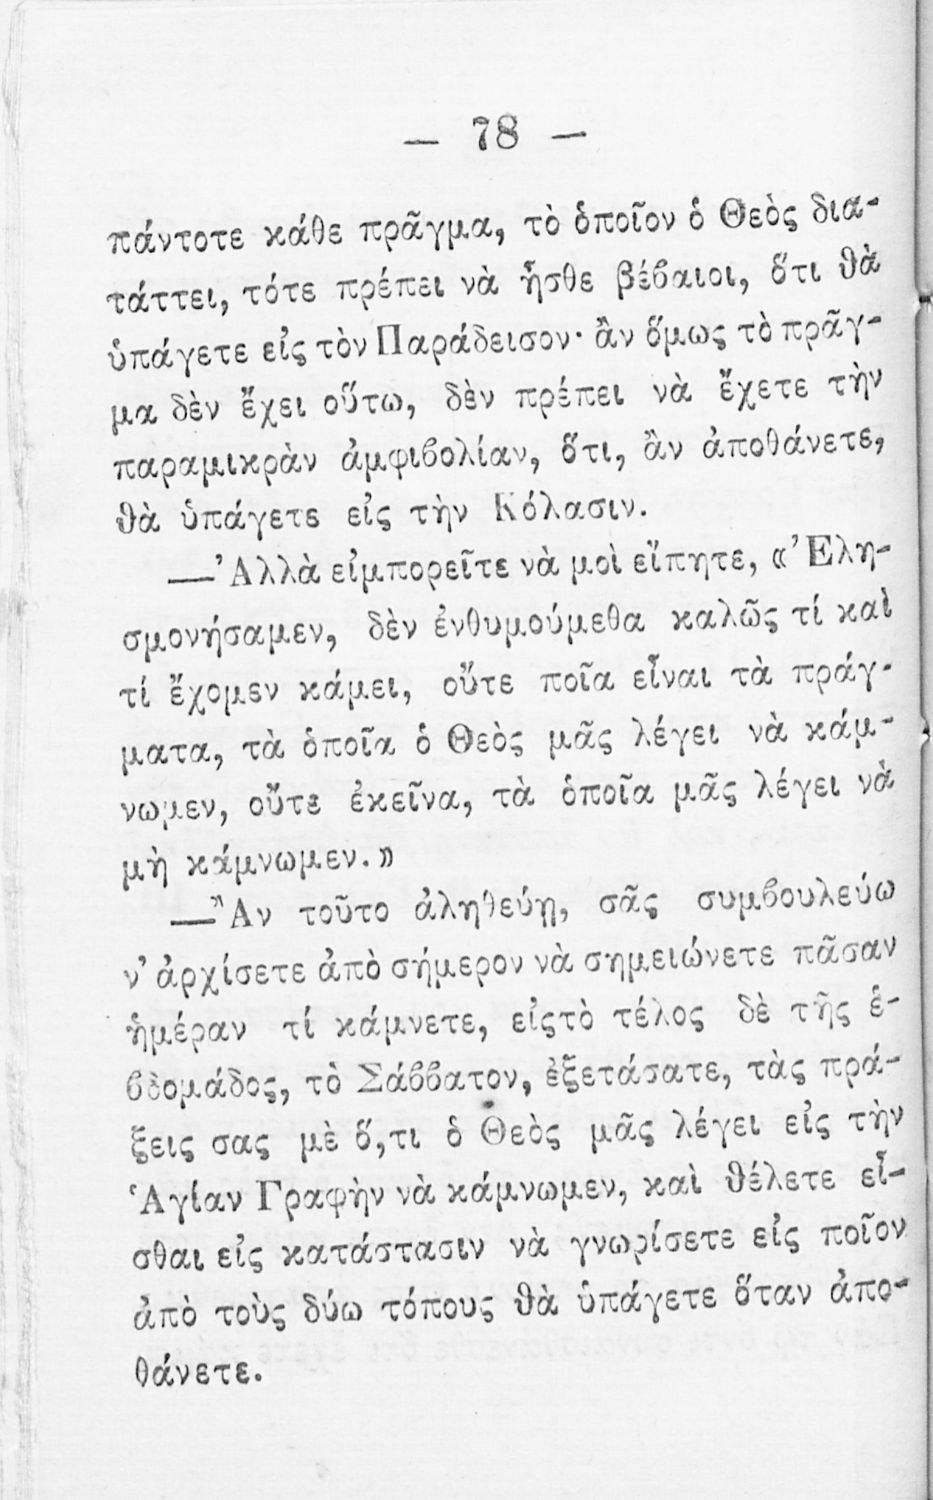 — 78 —
πάντοτε κάθε πρᾶγμα, τὸ ὁποῖον ὁ Θεὸς δια-
τάττει, τότε πρέπει νὰ ἦσθε βέβαιοι, ὅτι θὰ
ὑπάγετε εἰς τὸν Παράδεισον· ἂν ὅμως τὸ πρᾶγ-
μα δὲν ἔχει οὕτω, δὲν πρέπει νὰ ἔχετε τὴν
παραμικρὰν ἀμφιβολίαν, ὅτι, ἂν ἀποθάνετε,
θὰ ὑπάγετε εἰς τὴν Κόλασιν.
—Ἀλλὰ εἰμπορεῖτε νὰ μοὶ εἴπητε, «Ἐλη-
σμονήσαμεν, δὲν ἐνθυμούμεθα καλῶς τί καὶ
τί ἔχομεν κάμει, οὔτε ποῖα εἶναι τὰ πράγ-
ματα, τὰ ὁποῖα ὁ Θεὸς μᾶς λέγει νὰ κάμ-
νωμεν, οὔτε ἐκεῖνα, τὰ ὁποῖα μᾶς λέγει νὰ
μὴ κάμνωμεν.»
—Ἂν τοῦτο ἀληθεύῃ, σᾶς συμβουλεύω
ν' ἀρχίσετε ἀπὸ σήμερον νὰ σημειώνετε πᾶσαν
ἡμέραν τί κάμνετε, εἰςτὸ τέλος δὲ τῆς ἑ-
βδομάδος, τὸ Σάββατον, ἐξετάσατε, τὰς πρά-
ξεις σας μὲ ὅ,τι ὁ Θεὸς μᾶς λέγει εἰς τὴν
Ἁγίαν Γραφὴν νὰ κάμνωμεν, καὶ θέλετε εἶ-
σθαι εἰς κατάστασιν νὰ γνωρίσετε εἰς ποῖον
ἀπὸ τοὺς δύω τόπους θὰ ὑπάγετε ὅταν ἀπο-
θάνετε.